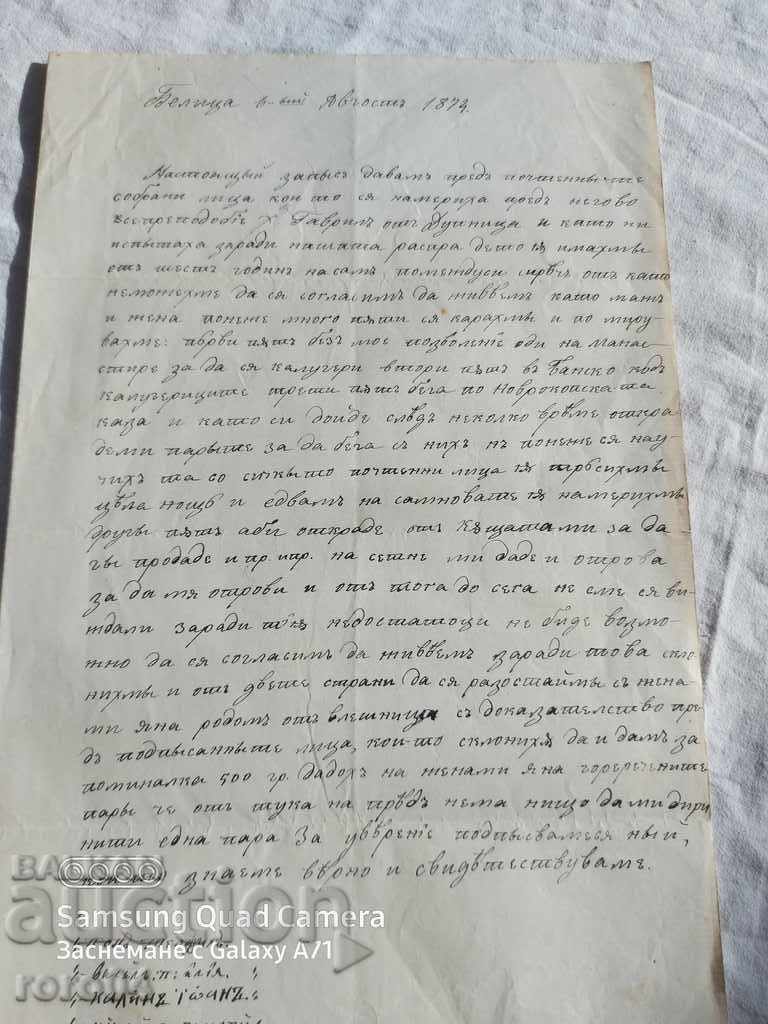 Белица 6-ȣий Августъ 1874.
Настоящый записъ давамъ предъ почтенны-те
собрани лица кои то ся намериха предъ негово
всепреподобіе Х Гаврилъ отъ Дупница и като ни
испытаха заради нашата распра дето ѭ имахмы
отъ шесть годин насамъ, помежду си сиречъ отъ като
неможехме да ся согласимъ да живѣемъ като мѫжъ
и жена понеже много пѫти ся карахмы и по миру-
вахме: първи пѫтъ безъ мое позволеніе оди на Мана-
стире за да ся калугери втори пѫтъ въ Банско кодъ
калугериците трети пѫтъ бега по Новрокопската
каза и като си дойде слѣдъ неколко врѣме откра
деми парыте за да бѣга съ нихъ нъ понеже ся нау-
чихъ та со сичкыто почтенни лица ѭ търсихмы
цѣла нощь и едвамъ на самновате ѭ намерихмы
другы пѫтъ аби открадe отъ кѫщатами за да
гы продаде и пр. ипр. на сетнѣ ми даде и отрова
за да мя отрови и отъ тога до сега не сме ся ви-
ждали заради тїѧ недостатоци не биде возмо-
жно да ся согласимъ да живѣемъ заради това скло
нихмы и отъ двете страни да ся разостаймы съ жена-
ми Яна родомъ отъ Влешница съ доказателство пре-
дъ подписанныте лица, кои-то склонихѫ да и дамъ за
поминалка 500 гр. Дадохъ на женами Яна горереченните
пары че отъ тука на прѣдъ нема нищо да ми дири
ниши една пара За увѣреніе подписвамеся ный,
кои то знаеме вѣрно и свидѣтествуваме.
BALKAN
auction
roto
Samsung Quad Camera
Заснемане с Galaxy A71
"- Калинъ Іоанъ. "